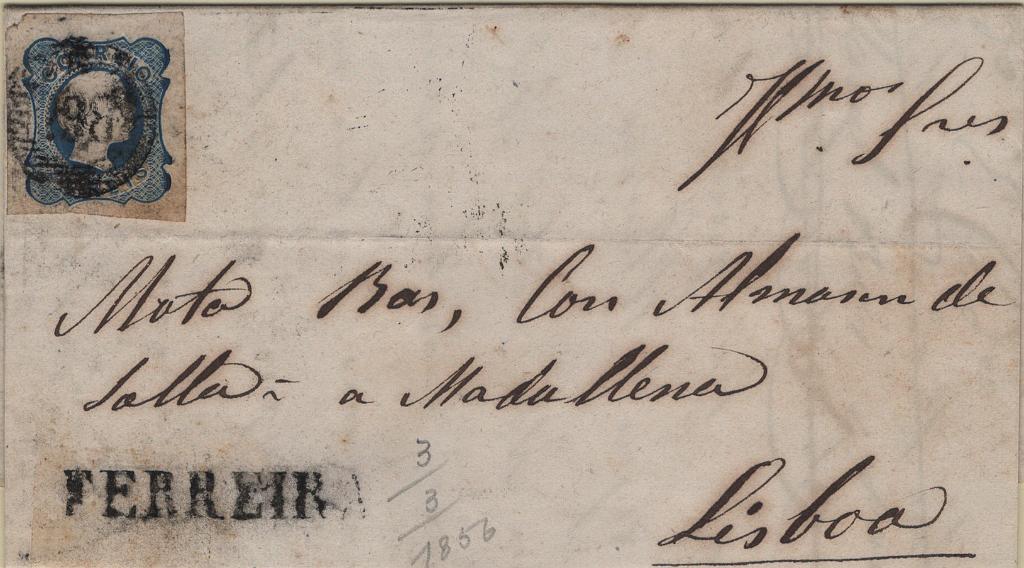 CORREIO
Illmos Snres
Mota & Bar, Con Almasem de
Solla - a Madallena
FERREIRA
3
3
1856
Lisboa